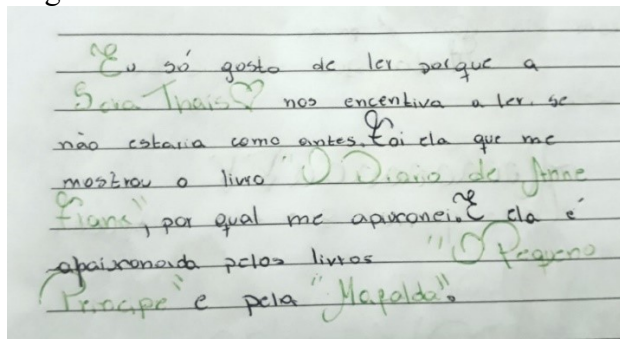 Eu só gosto de ler porque a
Sora Thais♡ nos encentiva a ler, se
não estaria como antes. Foi ela que me
mostrou o livro "O Diario de Anne
Frank", por qual me apaixonei. E ela é
apaixonada pelos livros "O Pequeno
Principe" e pela "Mafalda".